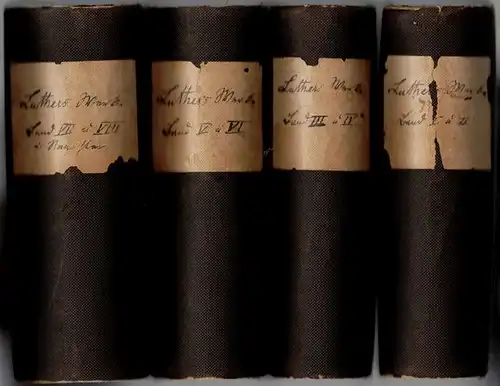 Luthers Werke
Band VII u VIII
u
Luthers Werke
Band V u VI
Luthers Werke
Band III u IV
Luthers Werke
Band I u II